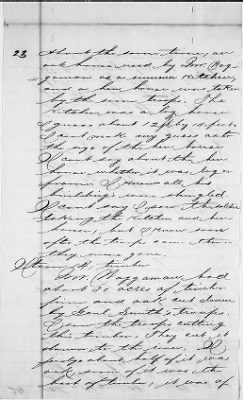 23 About the same time, an
out house used by Mr. Wag-
gaman as a summer kitchen,
and a hen house was taken
by the same troops. The
kitchen was a log house
I guess about 16 ft by 18 ft.
I cant make any guess as to
the size of the hen house
I cant say about the hen
house whether it was log or
frame. I know all his
buildings were shingled.
I cant say I saw the soldiers
taking the kitchen and hen
house, but I know soon
after the troops came there
they were gone.
Item timber
Mr. Waggaman had
about 30 acres of timber
pine and oak cut down
by Genl Smith's troops.
I saw the troops cutting
this timber. They cut it
down to the I
judge about half of it was
oak some of it was the
best of timber, it was up